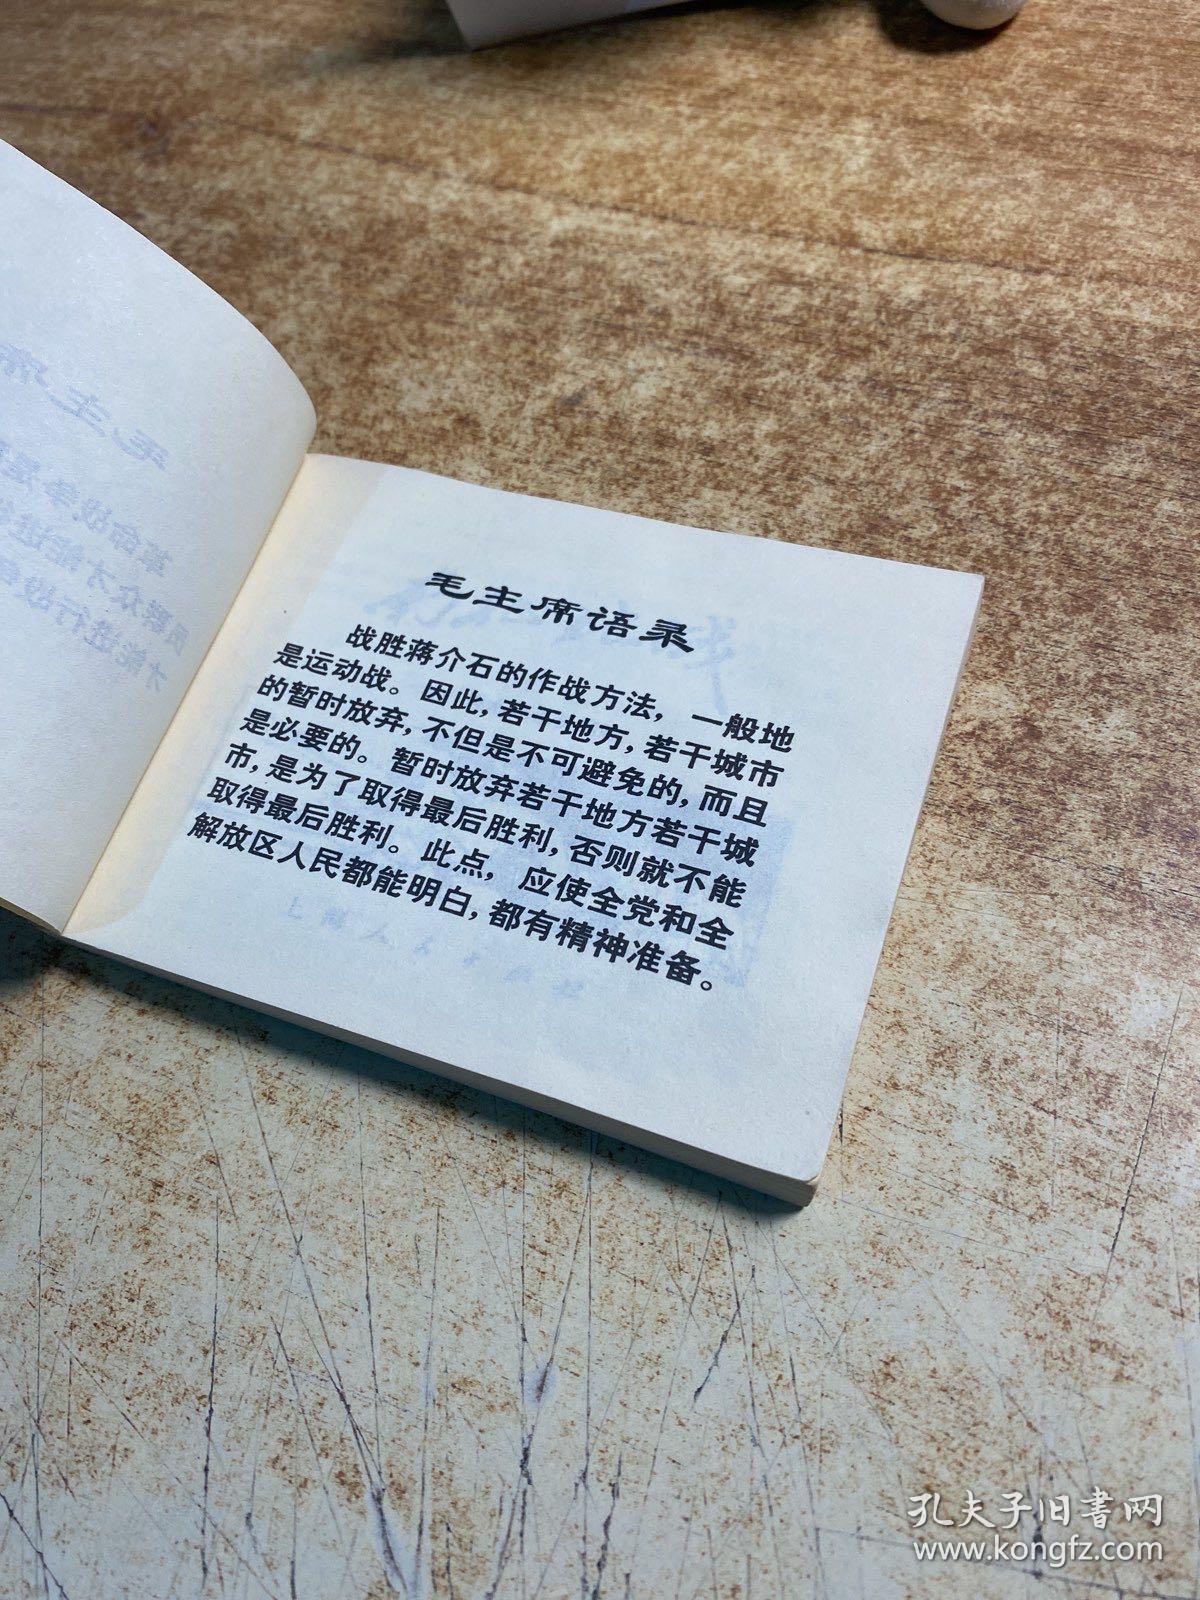 毛主席语录
战胜蒋介石的作战方法，一般地
是运动战。因此，若干地方，若干城市
的暂时放弃，不但是不可避免的，而且
是必要的。暂时放弃若干地方若干城
市，是为了取得最后胜利，否则就不能
取得最后胜利。此点，应使全党和全
解放区人民都能明白，都有精神准备。
孔夫子旧書网
www.kongfz.com